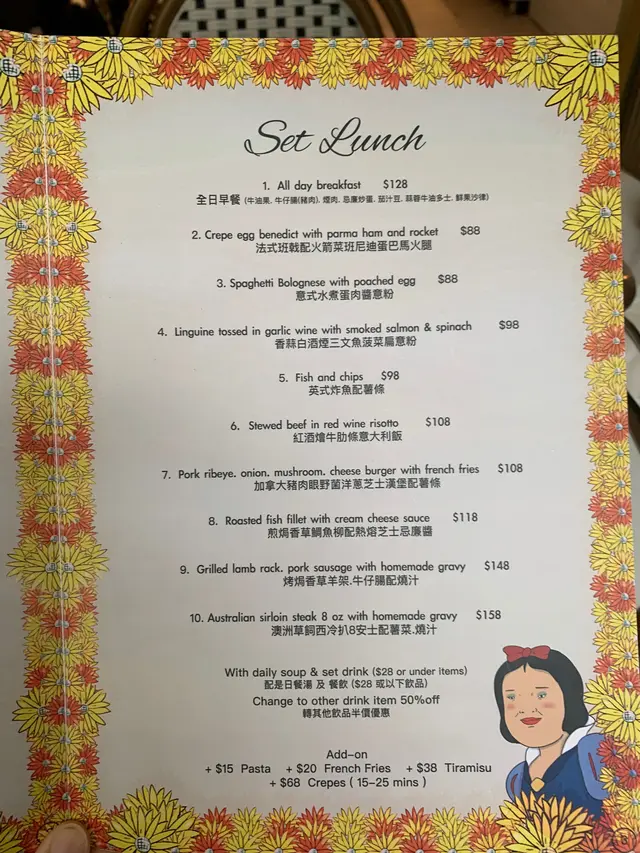 Set Lunch
1. All day breakfast $128
全日早餐 (牛油果. 牛仔腸(豬肉). 煙肉. 忌廉炒蛋. 茄汁豆. 蒜蓉牛油多士. 鮮果沙律)
2. Crepe egg benedict with parma ham and rocket $88
法式班戟配火箭菜班尼迪蛋巴馬火腿
3. Spaghetti Bolognese with poached egg $88
意式水煮蛋肉醬意粉
4. Linguine tossed in garlic wine with smoked salmon & spinach $98
香蒜白酒煙三文魚菠菜扁意粉
5. Fish and chips $98
英式炸魚配薯條
6. Stewed beef in red wine risotto $108
紅酒燴牛肋條意大利飯
7. Pork ribeye. onion. mushroom. cheese burger with french fries $108
加拿大豬肉眼野菌洋蔥芝士漢堡配薯條
8. Roasted fish fillet with cream cheese sauce $118
煎焗香草鯛魚柳配熱熔芝士忌廉醬
9. Grilled lamb rack. pork sausage with homemade gravy $148
烤焗香草羊架.牛仔腸配燒汁
10. Australian sirloin steak 8 oz with homemade gravy $158
澳洲草飼西冷扒8安士配薯菜.燒汁
With daily soup & set drink ($28 or under items)
配是日餐湯 及 餐飲 ($28 或以下飲品)
Change to other drink item 50%off
轉其他飲品半價優惠
Add-on
+ $15 Pasta + $20 French Fries + $38 Tiramisu
+ $68 Crepes ( 15-25 mins )